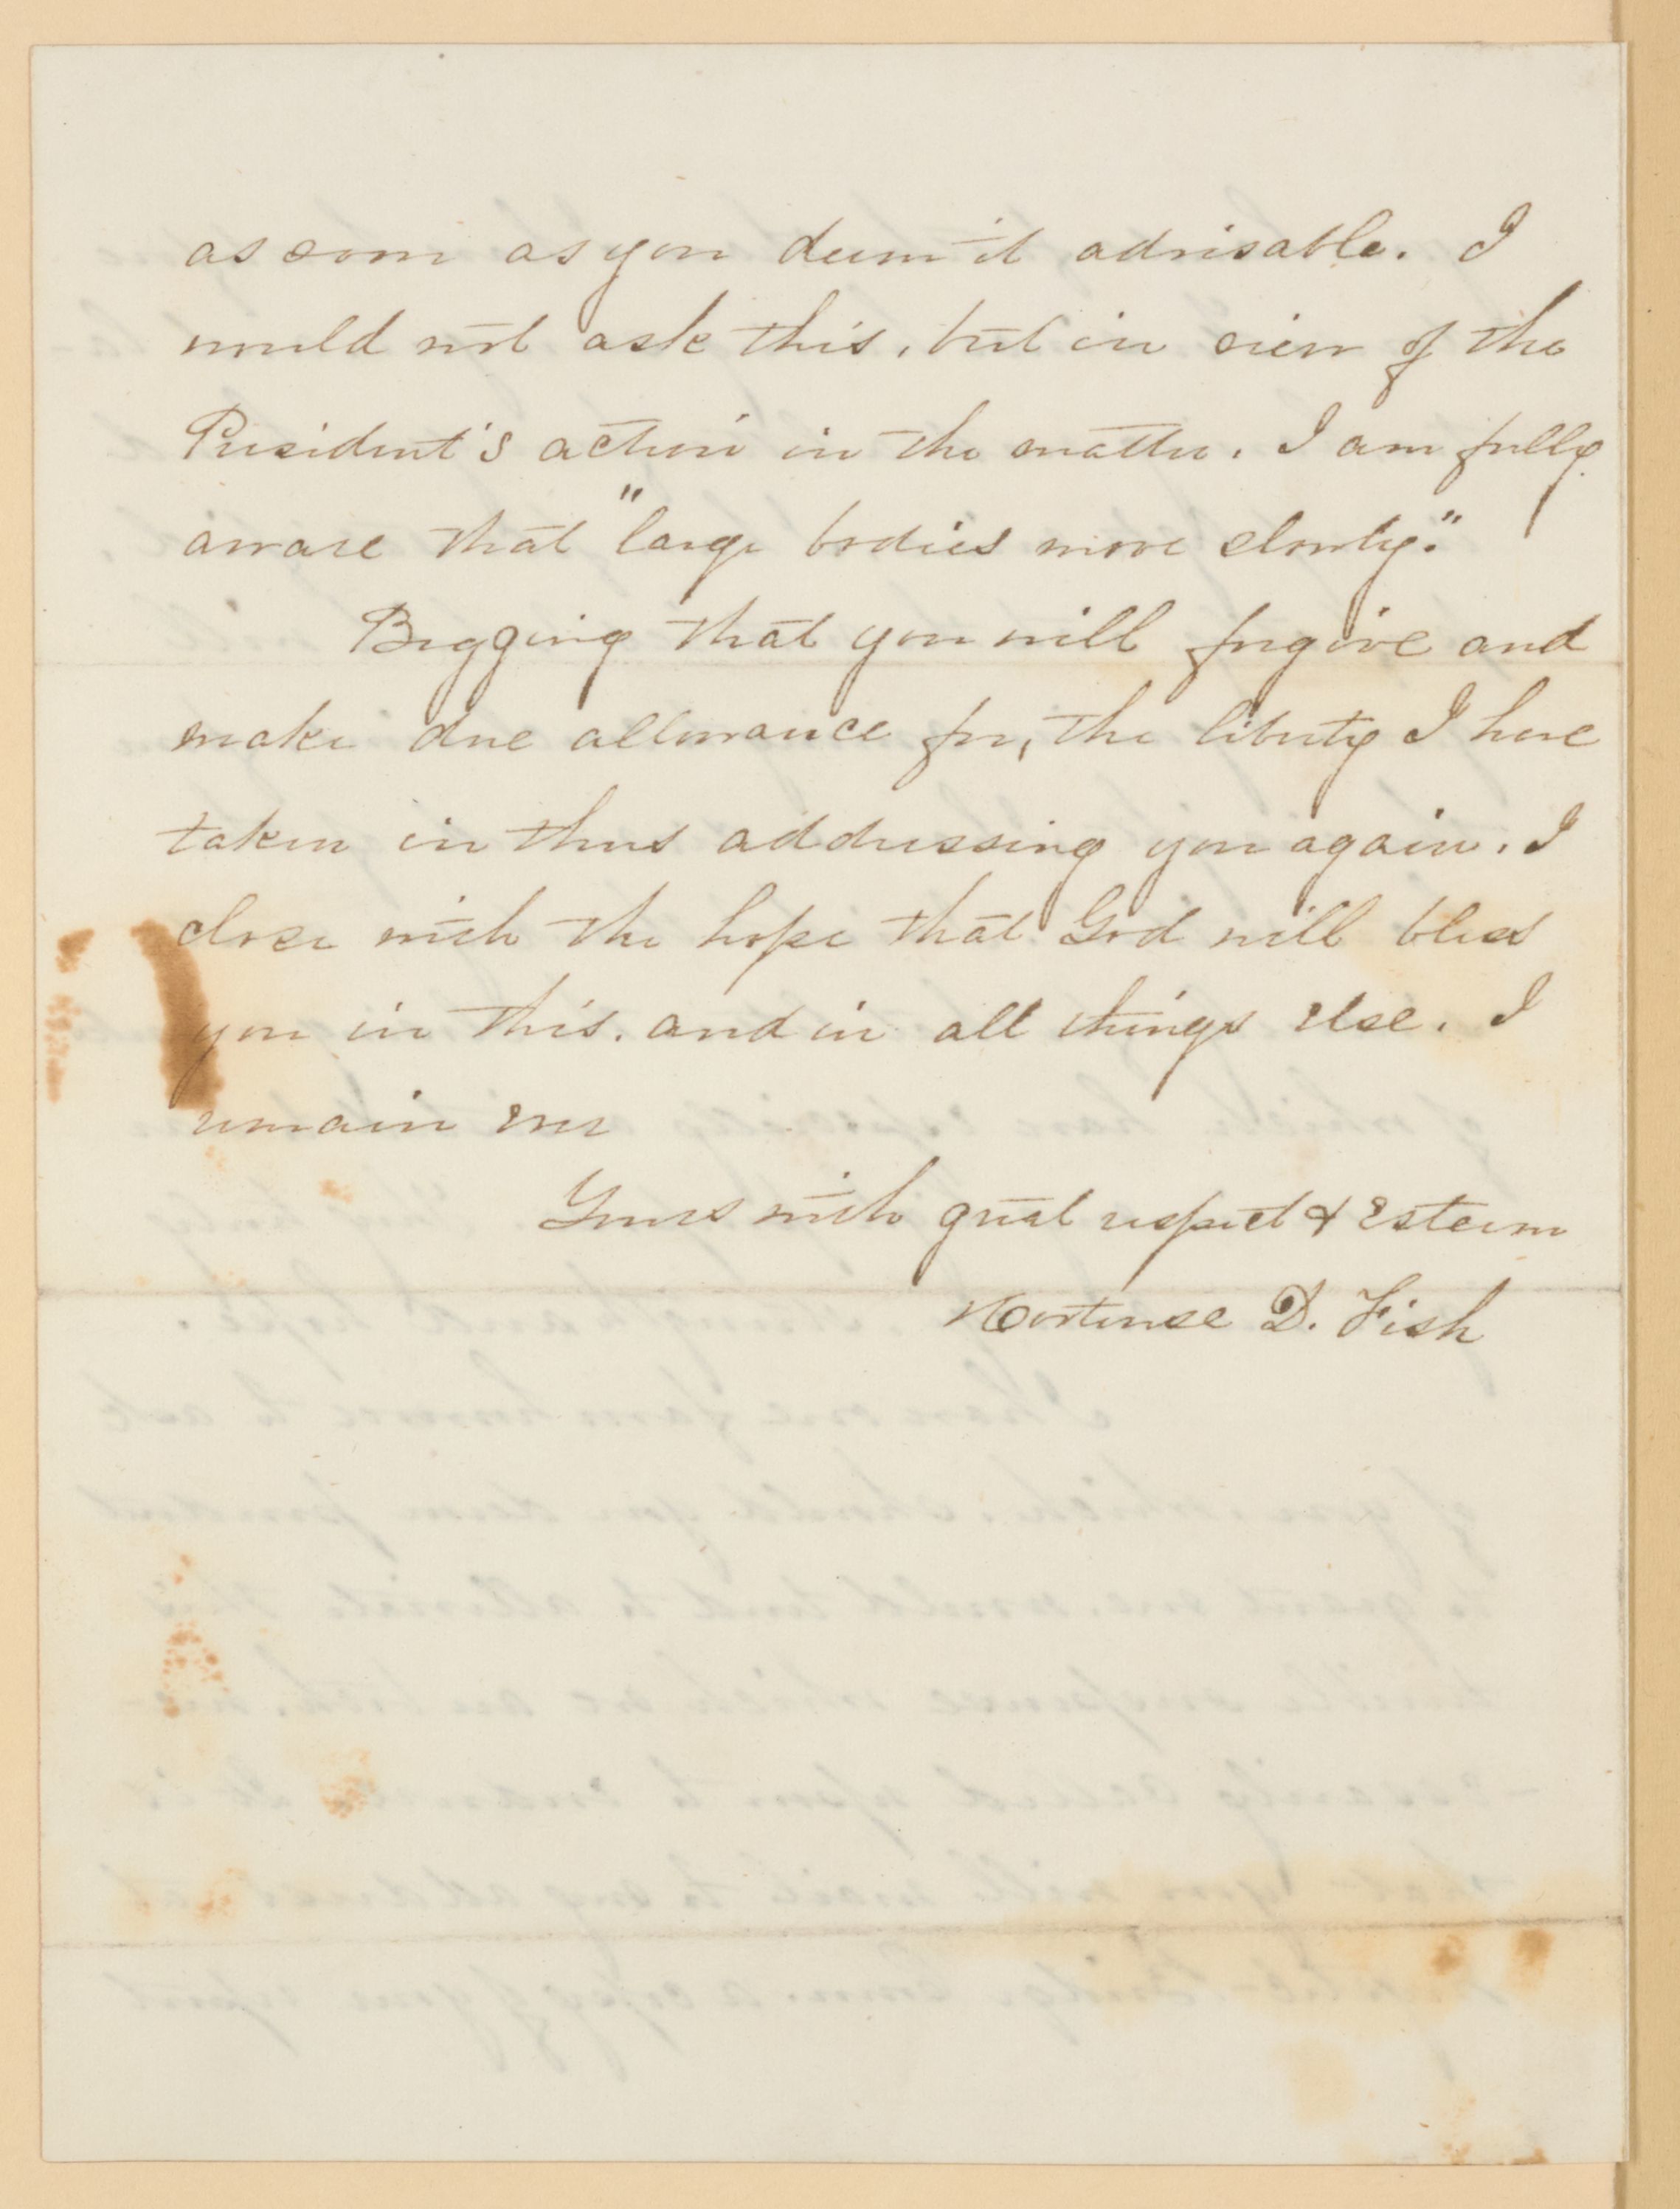 as soon as you deem it advisable. I
would not ask this, but in view of the
President's action in the matter. I am fully
aware that "large bodies move slowly."
Begging that you will forgive and
make due allowance for, the liberty I have
taken in thus addressing you again. I
close with the hope that God will bless
you in this. and in all things else. I
remain ever
Yours with great respect & esteem
Hortense D. Fish